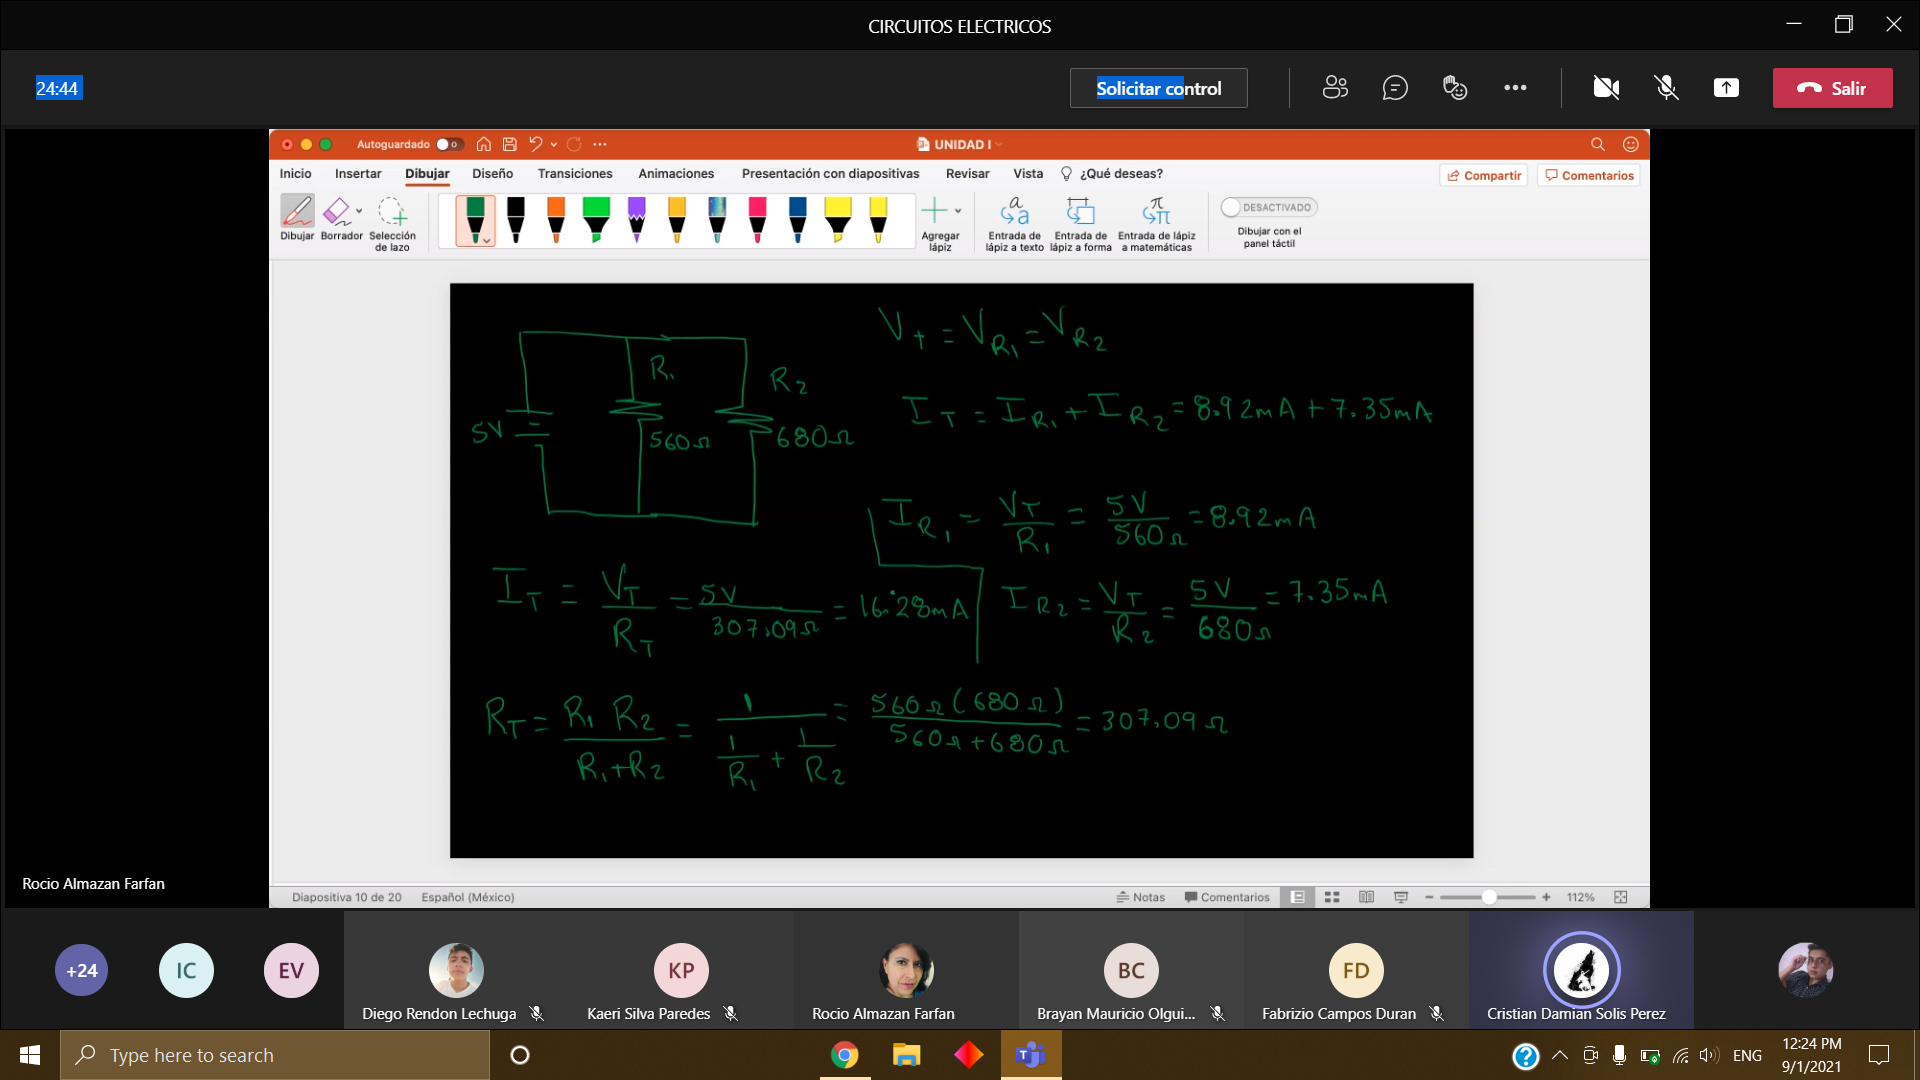 CIRCUITOS ELECTRICOS
24:44
Solicitar control
Salir
Autoguardado
UNIDAD I
Inicio Insertar Dibujar Diseño Transiciones Animaciones Presentación con diapositivas Revisar Vista ¿Qué deseas?
Compartir Comentarios
Dibujar Borrador Selección de lazo
Agregar lápiz
Entrada de lápiz a texto
Entrada de lápiz a forma
Entrada de lápiz a matemáticas
DESACTIVADO
Dibujar con el panel táctil
5V
R1
560Ω
R2
680Ω
VT = VR1 = VR2
IT = IR1 + IR2 = 8.92mA + 7.35mA
IR1 = VT/R1 = 5V/560Ω = 8.92mA
IT = VT/RT = 5V/307.09Ω = 16.28mA
IR2 = VT/R2 = 5V/680Ω = 7.35mA
RT = R1 R2/R1+R2 = 1/1/R1 + 1/R2 = 560Ω(680Ω)/560Ω+680Ω = 307.09Ω
Rocio Almazan Farfan
Diapositiva 10 de 20 Español (México)
Notas Comentarios 112%
+24
IC
EV
Diego Rendon Lechuga
KP
Kaeri Silva Paredes
Rocio Almazan Farfan
BC
Brayan Mauricio Olgui...
FD
Fabrizio Campos Duran
Cristian Damian Solis Perez
Type here to search
ENG
12:24 PM
9/1/2021